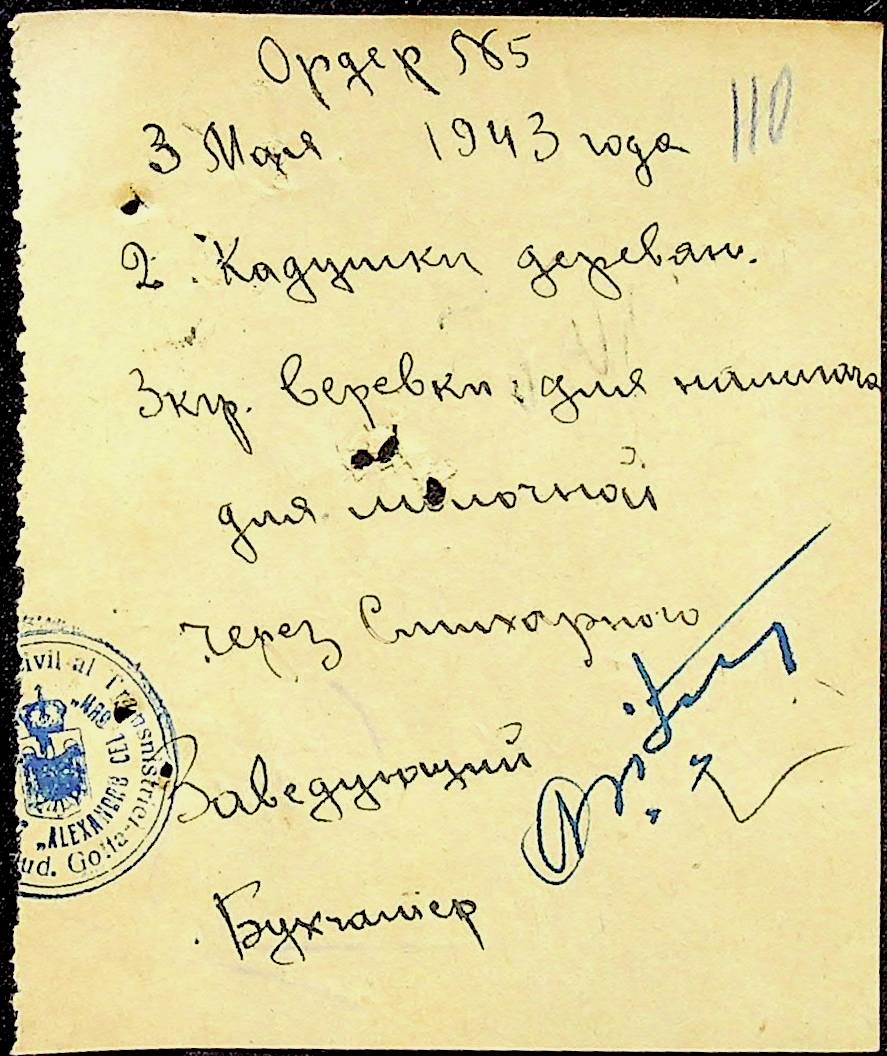 Ордер №5
110
3 Мая 1943 года
2 Кадушки деревян.
3 кгр. веревки для
для молочной
через Слихарного
Заведующий
Бухгалтер
civil al Transnistriei
"ALEXANDRU CEL
Jud. Golta